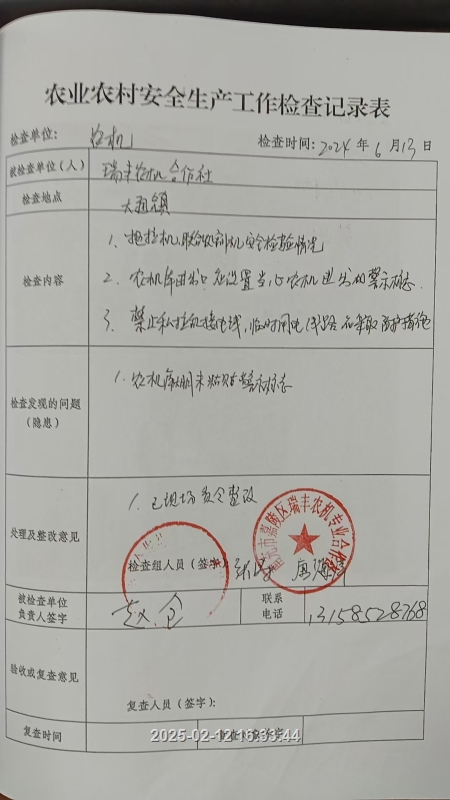 农业农村安全生产工作检查记录表
检查单位: 农机 检查时间: 2024 年 6 月 13 日
被检查单位(人) 瑞丰农机合作社
检查地点 大通镇
检查内容
1、拖拉机、联合收割机安全检验情况
2、农机库进出口应设置当心农机进出的警示标志.
3、禁止私拉乱接电线,临时用电线路应采取防护措施
检查发现的问题
(隐患)
1、农机库大门未贴警示标志
处理及整改意见
1、已现场责令整改
检查组人员(签字)
嘉陵区瑞丰农机专业合作社
被检查单位
负责人签字
联系
电话
13158528768
验收或复查意见
复查人员(签字):
复查时间
2025-02-12 16:35:44